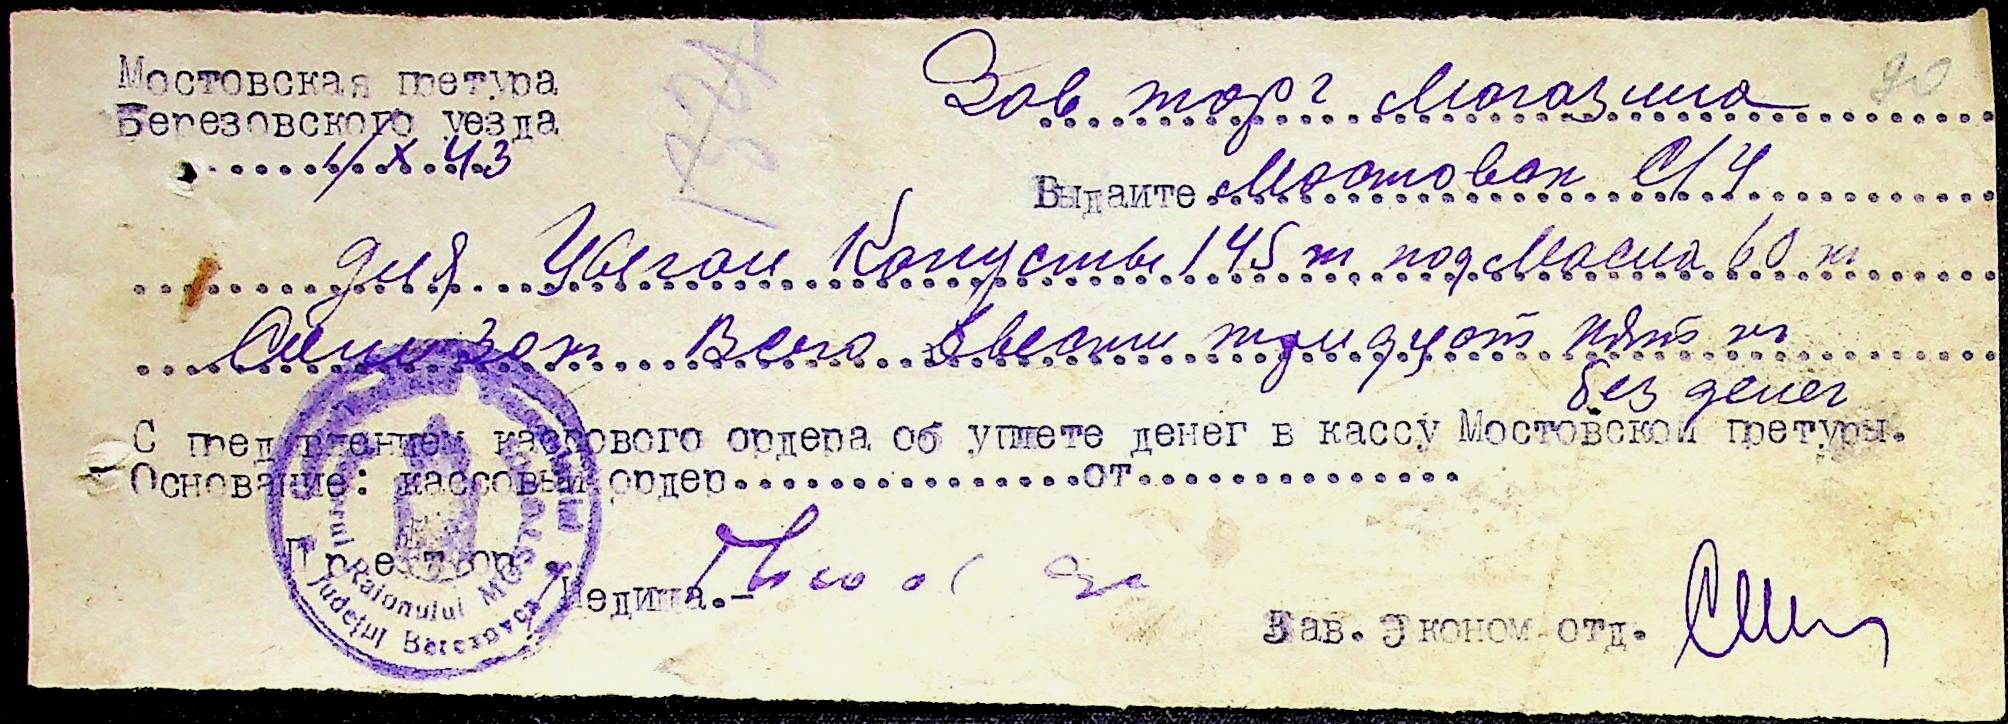 Мостовская претура
Березовского уезда
1/X 43
Зав торг Магазина
90
Выдаите Мостовой С/У
для капусты 145 кг под Масла 60 кг
30 кг Всего двести тридцат пят кг
без денег
С предявлением кассового ордера об уплете денег в кассу Мостовской претуры.
Основание: кассовый ордер...............от..............
Претор
/Педина.-
Зав. Эконом отд.
Raionului
Județul Berezovca